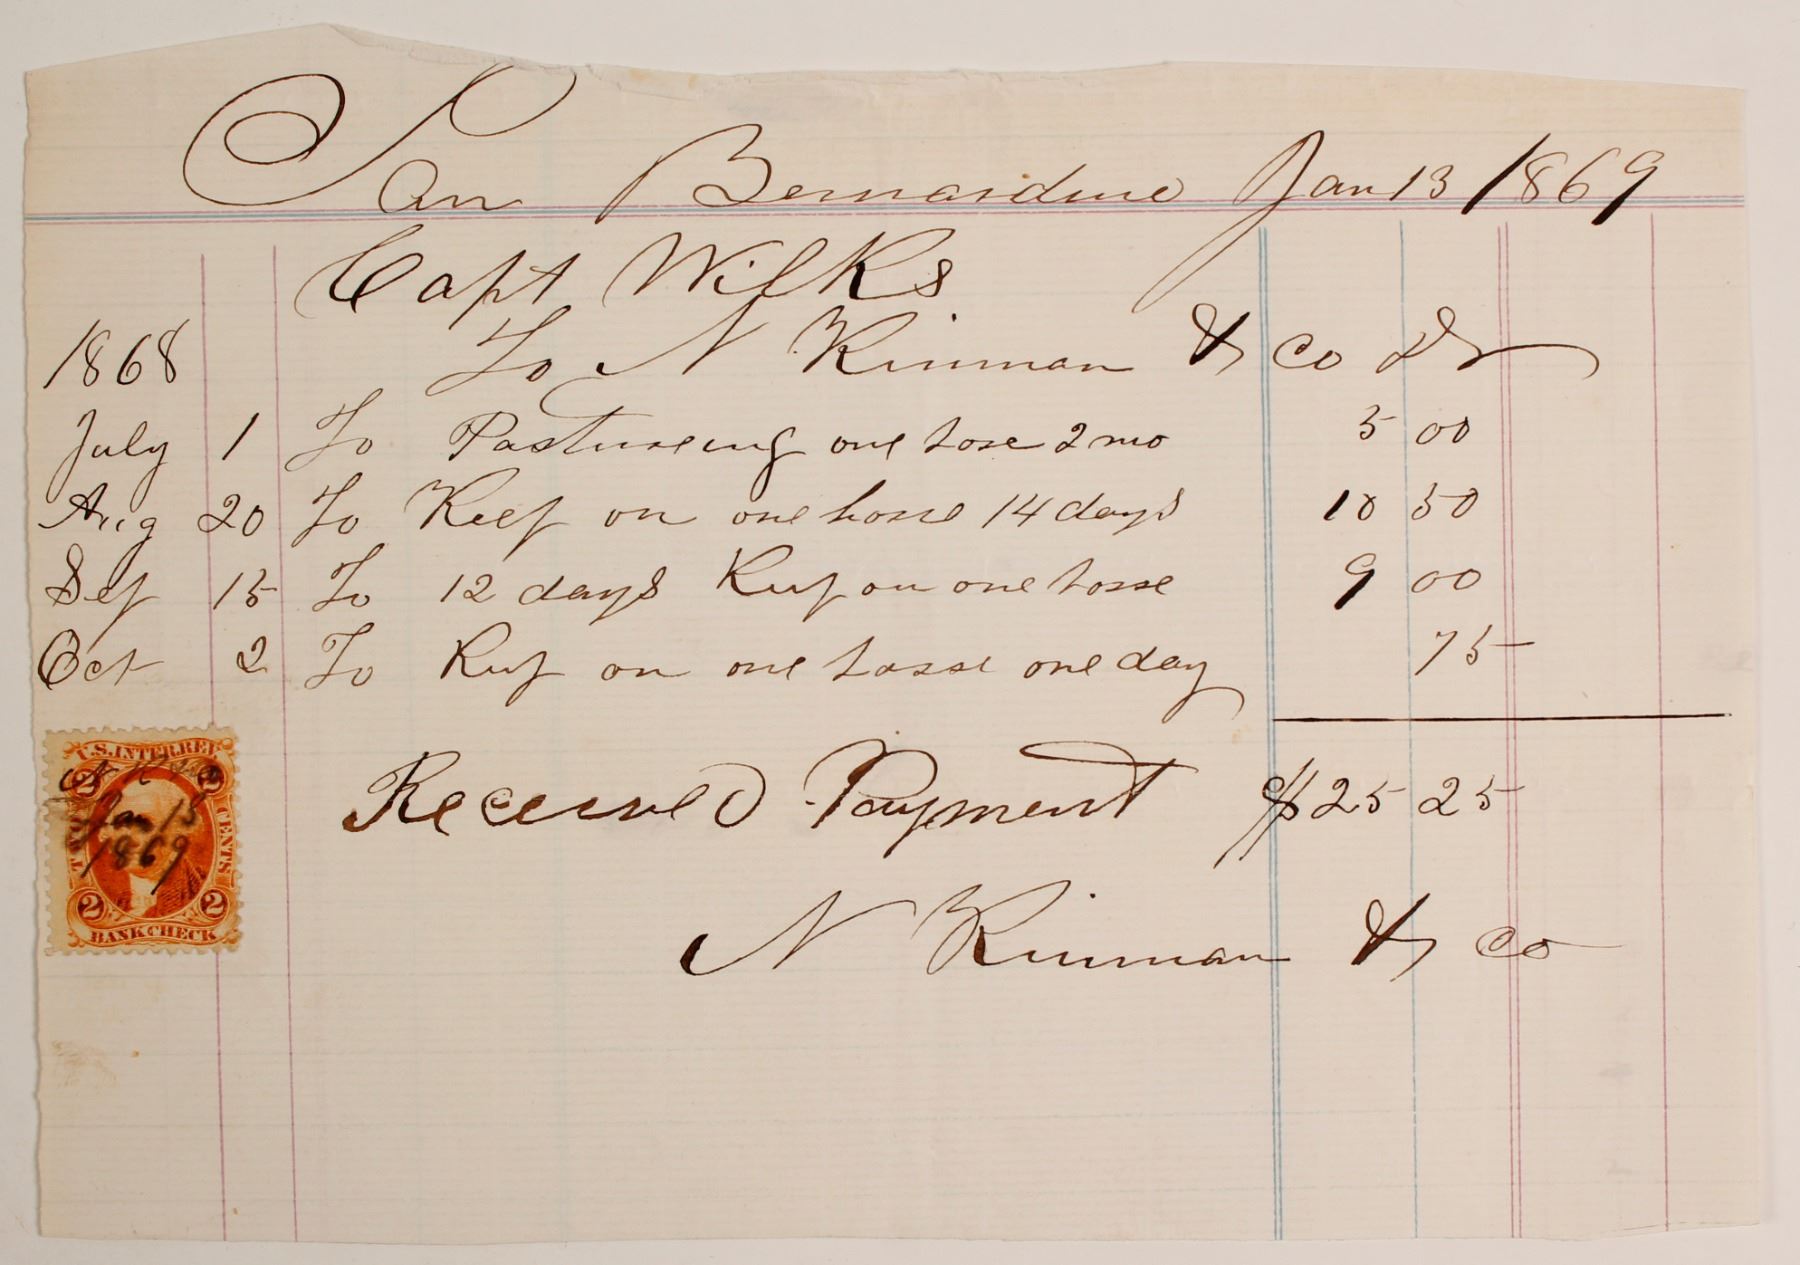 San Bernardino Jan 13 1869
Capt Wilks
1868 To N Kinman & Co Dr
July 1 To Pastureing one hose 2 mo 5 00
Aug 20 To Keep on one horse 14 days 10 50
Sep 15 To 12 days Keep on one hosse 9 00
Oct 2 To Keep on one hosse one day 75
Received Payment $25 25
N Kinman & Co
U.S. INTER. REV.
2 2
N K & Co
Jan 13
1869
TWO CENTS
2 2
BANK CHECK